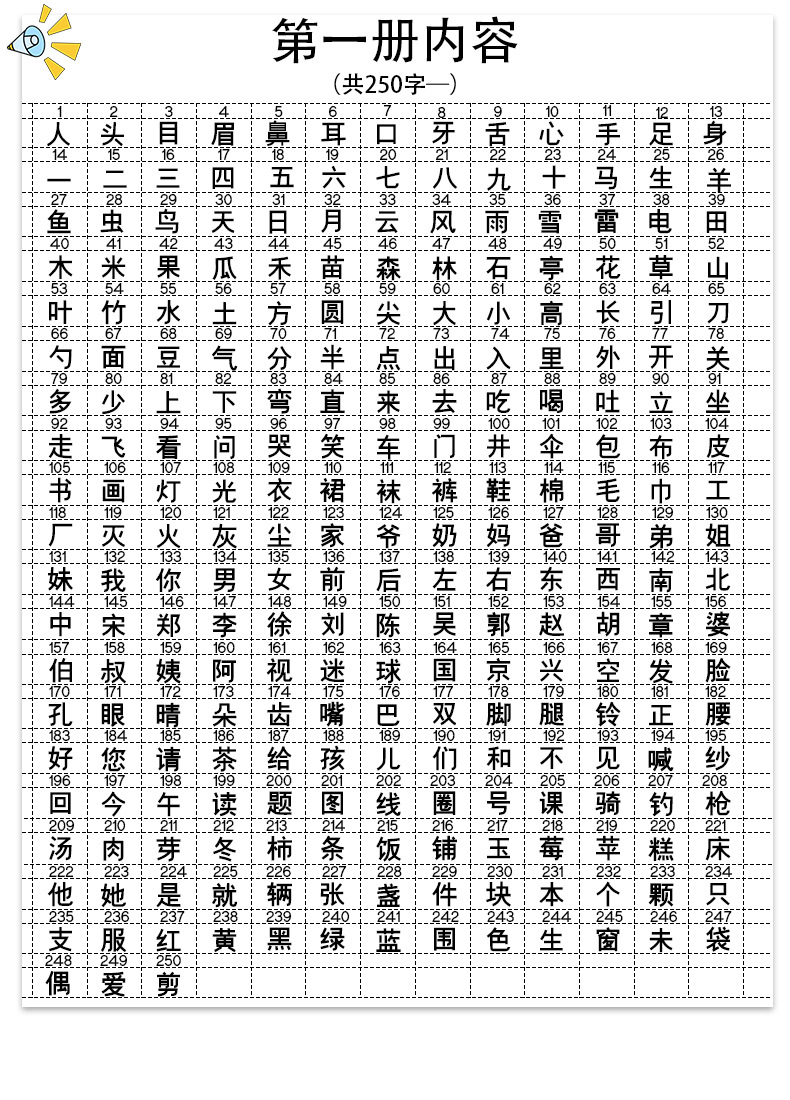 第一册内容
（共250字—）
1 2 3 4 5 6 7 8 9 10 11 12 13
人 头 目 眉 鼻 耳 口 牙 舌 心 手 足 身
14 15 16 17 18 19 20 21 22 23 24 25 26
一 二 三 四 五 六 七 八 九 十 马 生 羊
27 28 29 30 31 32 33 34 35 36 37 38 39
鱼 虫 鸟 天 日 月 云 风 雨 雪 雷 电 田
40 41 42 43 44 45 46 47 48 49 50 51 52
木 米 果 瓜 禾 苗 森 林 石 亭 花 草 山
53 54 55 56 57 58 59 60 61 62 63 64 65
叶 竹 水 土 方 圆 尖 大 小 高 长 引 刀
66 67 68 69 70 71 72 73 74 75 76 77 78
勺 面 豆 气 分 半 点 出 入 里 外 开 关
79 80 81 82 83 84 85 86 87 88 89 90 91
多 少 上 下 弯 直 来 去 吃 喝 吐 立 坐
92 93 94 95 96 97 98 99 100 101 102 103 104
走 飞 看 问 哭 笑 车 门 井 伞 包 布 皮
105 106 107 108 109 110 111 112 113 114 115 116 117
书 画 灯 光 衣 裙 袜 裤 鞋 棉 毛 巾 工
118 119 120 121 122 123 124 125 126 127 128 129 130
厂 灭 火 灰 尘 家 爷 奶 妈 爸 哥 弟 姐
131 132 133 134 135 136 137 138 139 140 141 142 143
妹 我 你 男 女 前 后 左 右 东 西 南 北
144 145 146 147 148 149 150 151 152 153 154 155 156
中 宋 郑 李 徐 刘 陈 吴 郭 赵 胡 章 婆
157 158 159 160 161 162 163 164 165 166 167 168 169
伯 叔 姨 阿 视 迷 球 国 京 兴 空 发 脸
170 171 172 173 174 175 176 177 178 179 180 181 182
孔 眼 晴 朵 齿 嘴 巴 双 脚 腿 铃 正 腰
183 184 185 186 187 188 189 190 191 192 193 194 195
好 您 请 茶 给 孩 儿 们 和 不 见 喊 纱
196 197 198 199 200 201 202 203 204 205 206 207 208
回 今 午 读 题 图 线 圈 号 课 骑 钓 枪
209 210 211 212 213 214 215 216 217 218 219 220 221
汤 肉 芽 冬 柿 条 饭 铺 玉 莓 苹 糕 床
222 223 224 225 226 227 228 229 230 231 232 233 234
他 她 是 就 辆 张 盏 件 块 本 个 颗 只
235 236 237 238 239 240 241 242 243 244 245 246 247
支 服 红 黄 黑 绿 蓝 围 色 生 窗 未 袋
248 249 250
偶 爱 剪